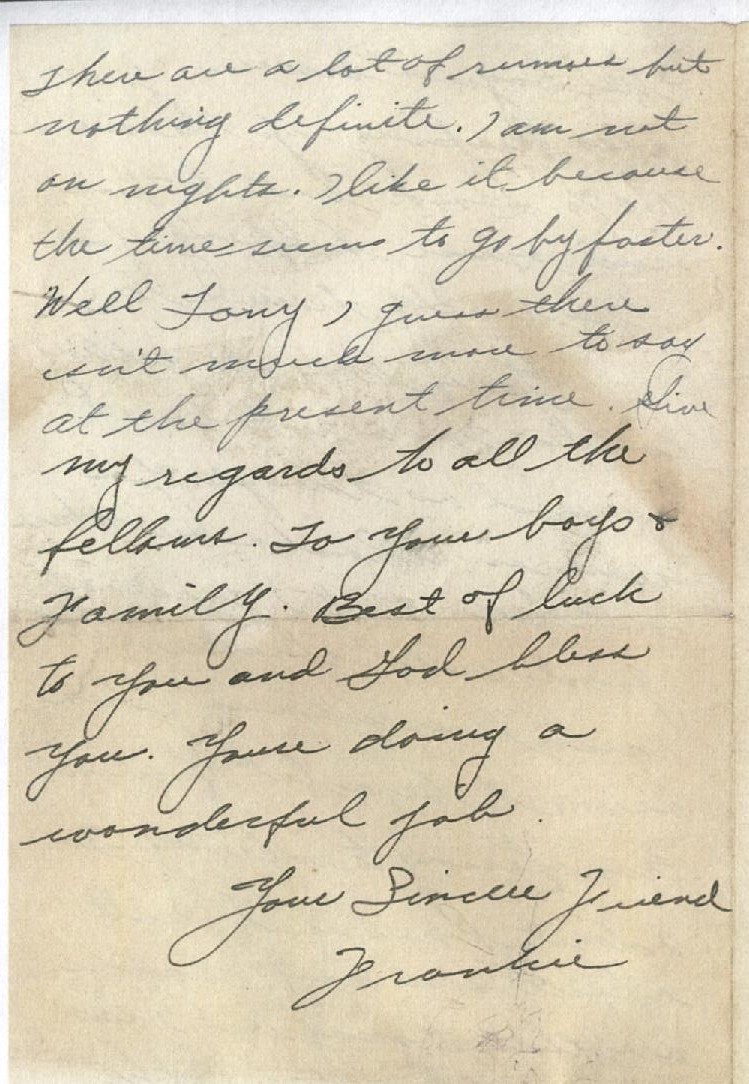 There are a lot of rumors but
nothing definite. I am not
on nights. I like it because
the time seems to go by faster.
Well Tony I guess there
isn't much more to say
at the present time. Give
my regards to all the
fellows. To your boys &
Family. Best of luck
to you and God bless
you. Youre doing a
wonderful job.
Your Sincere Friend
Frankie